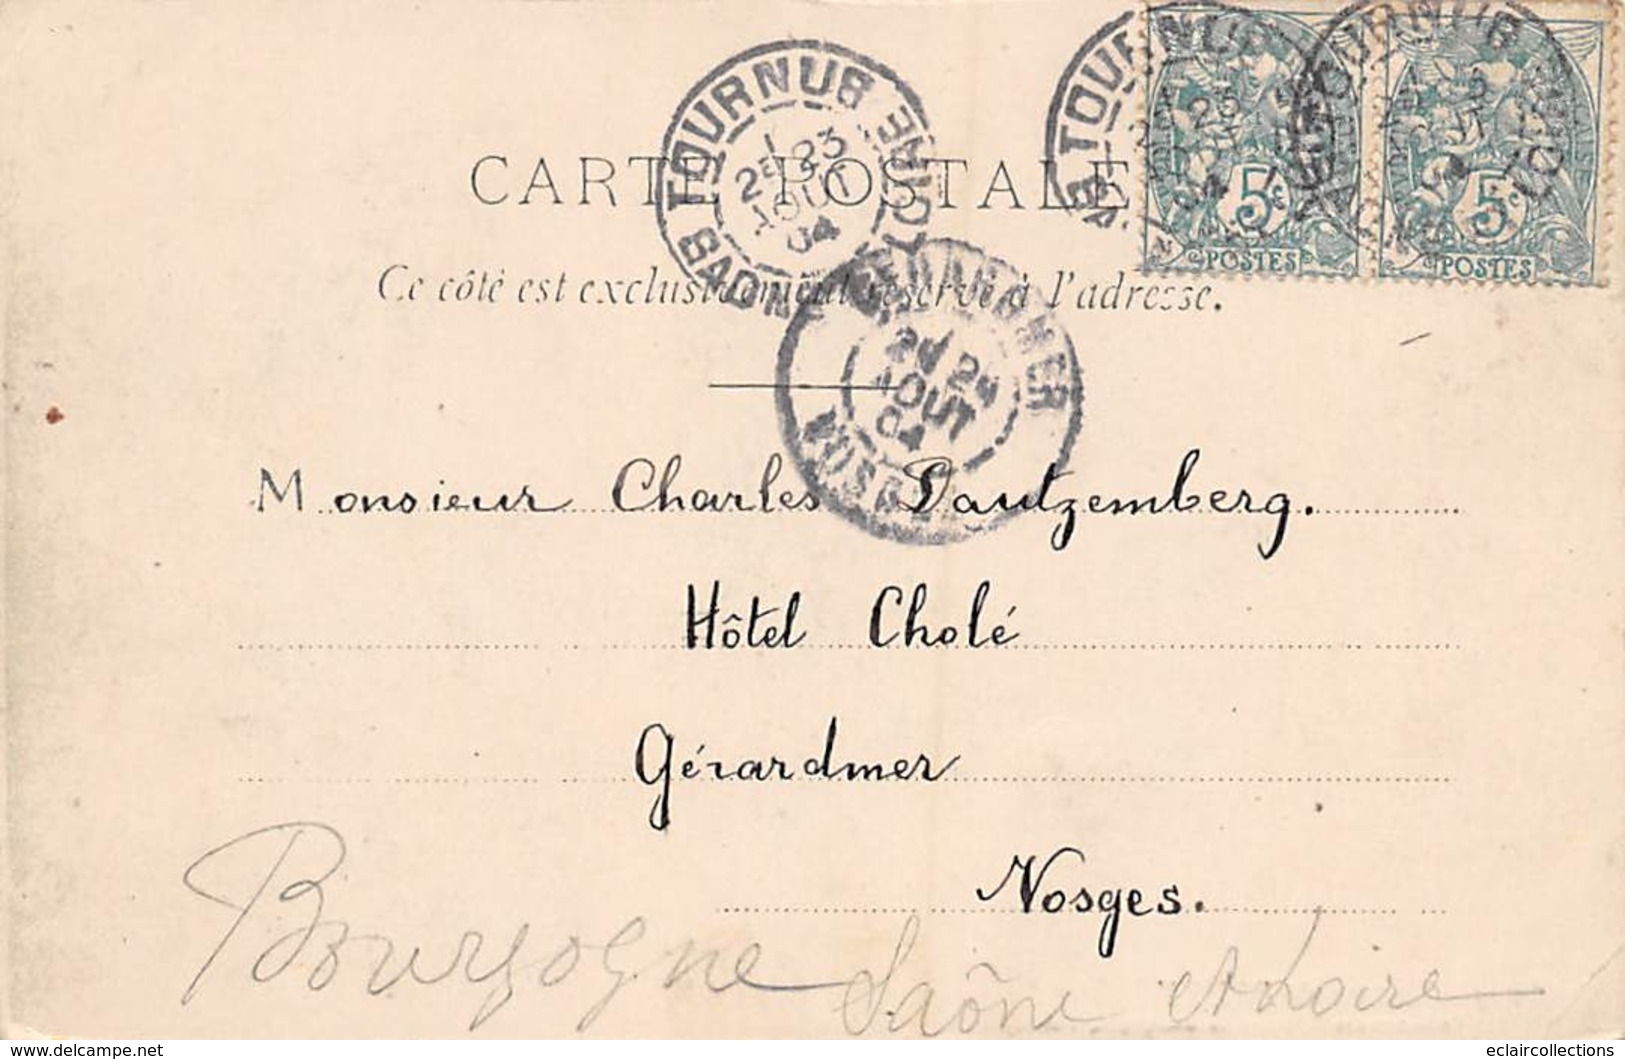 TOURNUS
SAONE
2E 23
AOUT
04
TOURNUS
5c
5c
POSTES
POSTES
CARTE POSTALE
Ce côté est exclusivement réservé à l'adresse.
GERARDMER
24
AOUT
04
VOSGES
Monsieur Charles Dautzemberg.
Hôtel Cholé
Gérardmer
Vosges.
Bourgogne
Saône et Loire
delcampe.net
eclaircollections